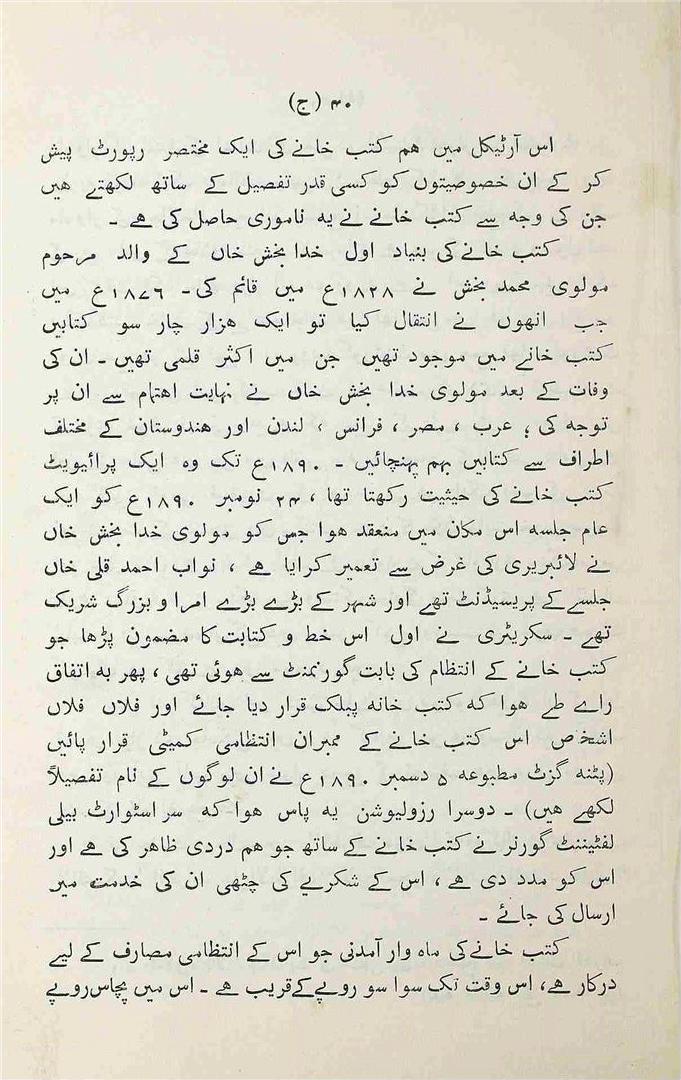 ۴۰ (ج)
اس آرٹیکل میں ہم کتب خانے کی ایک مختصر رپورٹ پیش
کر کے ان خصوصیتوں کو کسی قدر تفصیل کے ساتھ لکھتے ہیں
جن کی وجہ سے کتب خانے نے یہ ناموری حاصل کی ہے ۔
کتب خانے کی بنیاد اول خدا بخش خاں کے والد مرحوم
مولوی محمد بخش نے ۱۸۲۸ع میں قائم کی۔ ۱۸۷۶ع میں
جب انھوں نے انتقال کیا تو ایک ہزار چار سو کتابیں
کتب خانے میں موجود تھیں جن میں اکثر قلمی تھیں ۔ ان کی
وفات کے بعد مولوی خدا بخش خاں نے نہایت اہتمام سے ان پر
توجہ کی ؛ عرب ، مصر ، فرانس ، لندن اور ہندوستان کے مختلف
اطراف سے کتابیں بہم پہنچائیں ۔ ۱۸۹۰ع تک وہ ایک پرائیویٹ
کتب خانے کی حیثیت رکھتا تھا ، ۲۴ نومبر ۱۸۹۰ع کو ایک
عام جلسہ اس مکان میں منعقد ہوا جس کو مولوی خدا بخش خاں
نے لائبریری کی غرض سے تعمیر کرایا ہے ، نواب احمد قلی خاں
جلسے کے پریسیڈنٹ تھے اور شہر کے بڑے بڑے امرا و بزرگ شریک
تھے ۔ سکریٹری نے اول اس خط و کتابت کا مضمون پڑھا جو
کتب خانے کے انتظام کی بابت گورنمنٹ سے ہوئی تھی ، پھر بہ اتفاق
راے طے ہوا کہ کتب خانہ پبلک قرار دیا جائے اور فلاں فلاں
اشخاص اس کتب خانے کے ممبران انتظامی کمیٹی قرار پائیں
(پٹنہ گزٹ مطبوعہ ۵ دسمبر ۱۸۹۰ع نے ان لوگوں کے نام تفصیلاً
لکھے ہیں) ۔ دوسرا رزولیوشن یہ پاس ہوا کہ سر اسٹوارٹ بیلی
لفٹیننٹ گورنر نے کتب خانے کے ساتھ جو ہم دردی ظاہر کی ہے اور
اس کو مدد دی ہے ، اس کے شکریے کی چٹھی ان کی خدمت میں
ارسال کی جائے ۔
کتب خانے کی ماہ وار آمدنی جو اس کے انتظامی مصارف کے لیے
درکار ہے، اس وقت تک سوا سو روپے کے قریب ہے ۔ اس میں پچاس روپے